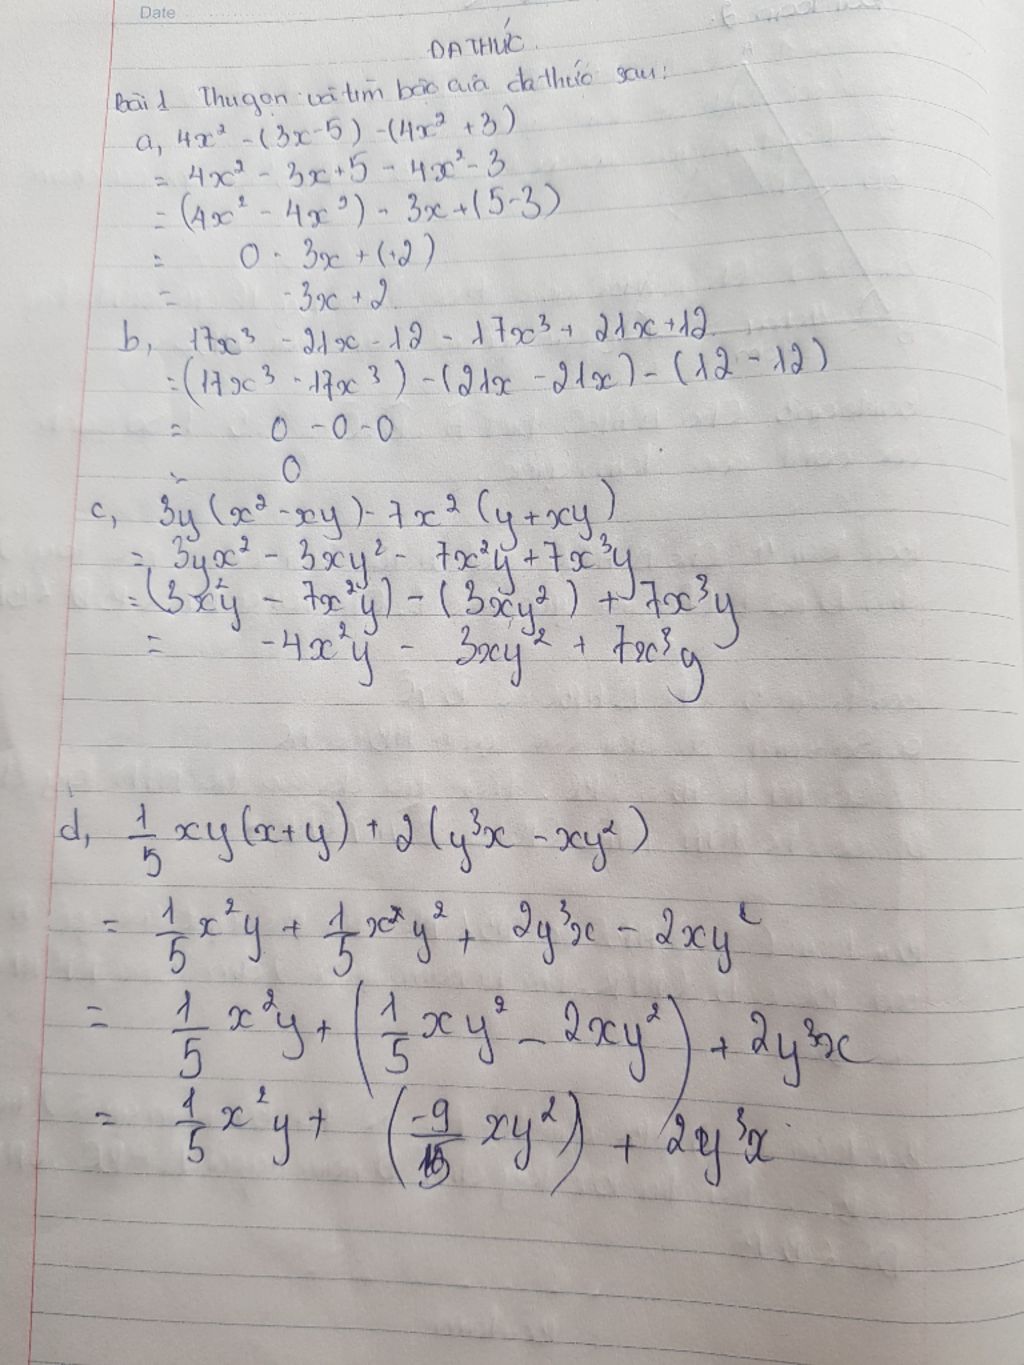 Date
ĐA THỨC
Bài 1 Thu gọn và tìm bậc của đa thức sau:
a, 4x² - (3x - 5) - (4x² + 3)
= 4x² - 3x + 5 - 4x² - 3
= (4x² - 4x²) - 3x + (5 - 3)
= 0 - 3x + (+2)
= -3x + 2
b, 17x³ - 21x - 12 - 17x³ + 21x + 12
= (17x³ - 17x³) - (21x - 21x) - (12 - 12)
= 0 - 0 - 0
= 0
c, 3y(x² - xy) - 7x²(y + xy)
= 3yx² - 3xy² - 7x²y + 7x³y
= (3x²y - 7x²y) - (3xy²) + 7x³y
= -4x²y - 3xy² + 7x³y
d, 1/5 xy(x + y) + 2(y³x - xy²)
= 1/5 x²y + 1/5 xy² + 2y³x - 2xy²
= 1/5 x²y + (1/5 xy² - 2xy²) + 2y³x
= 1/5 x²y + (-9/5 xy²) + 2y³x